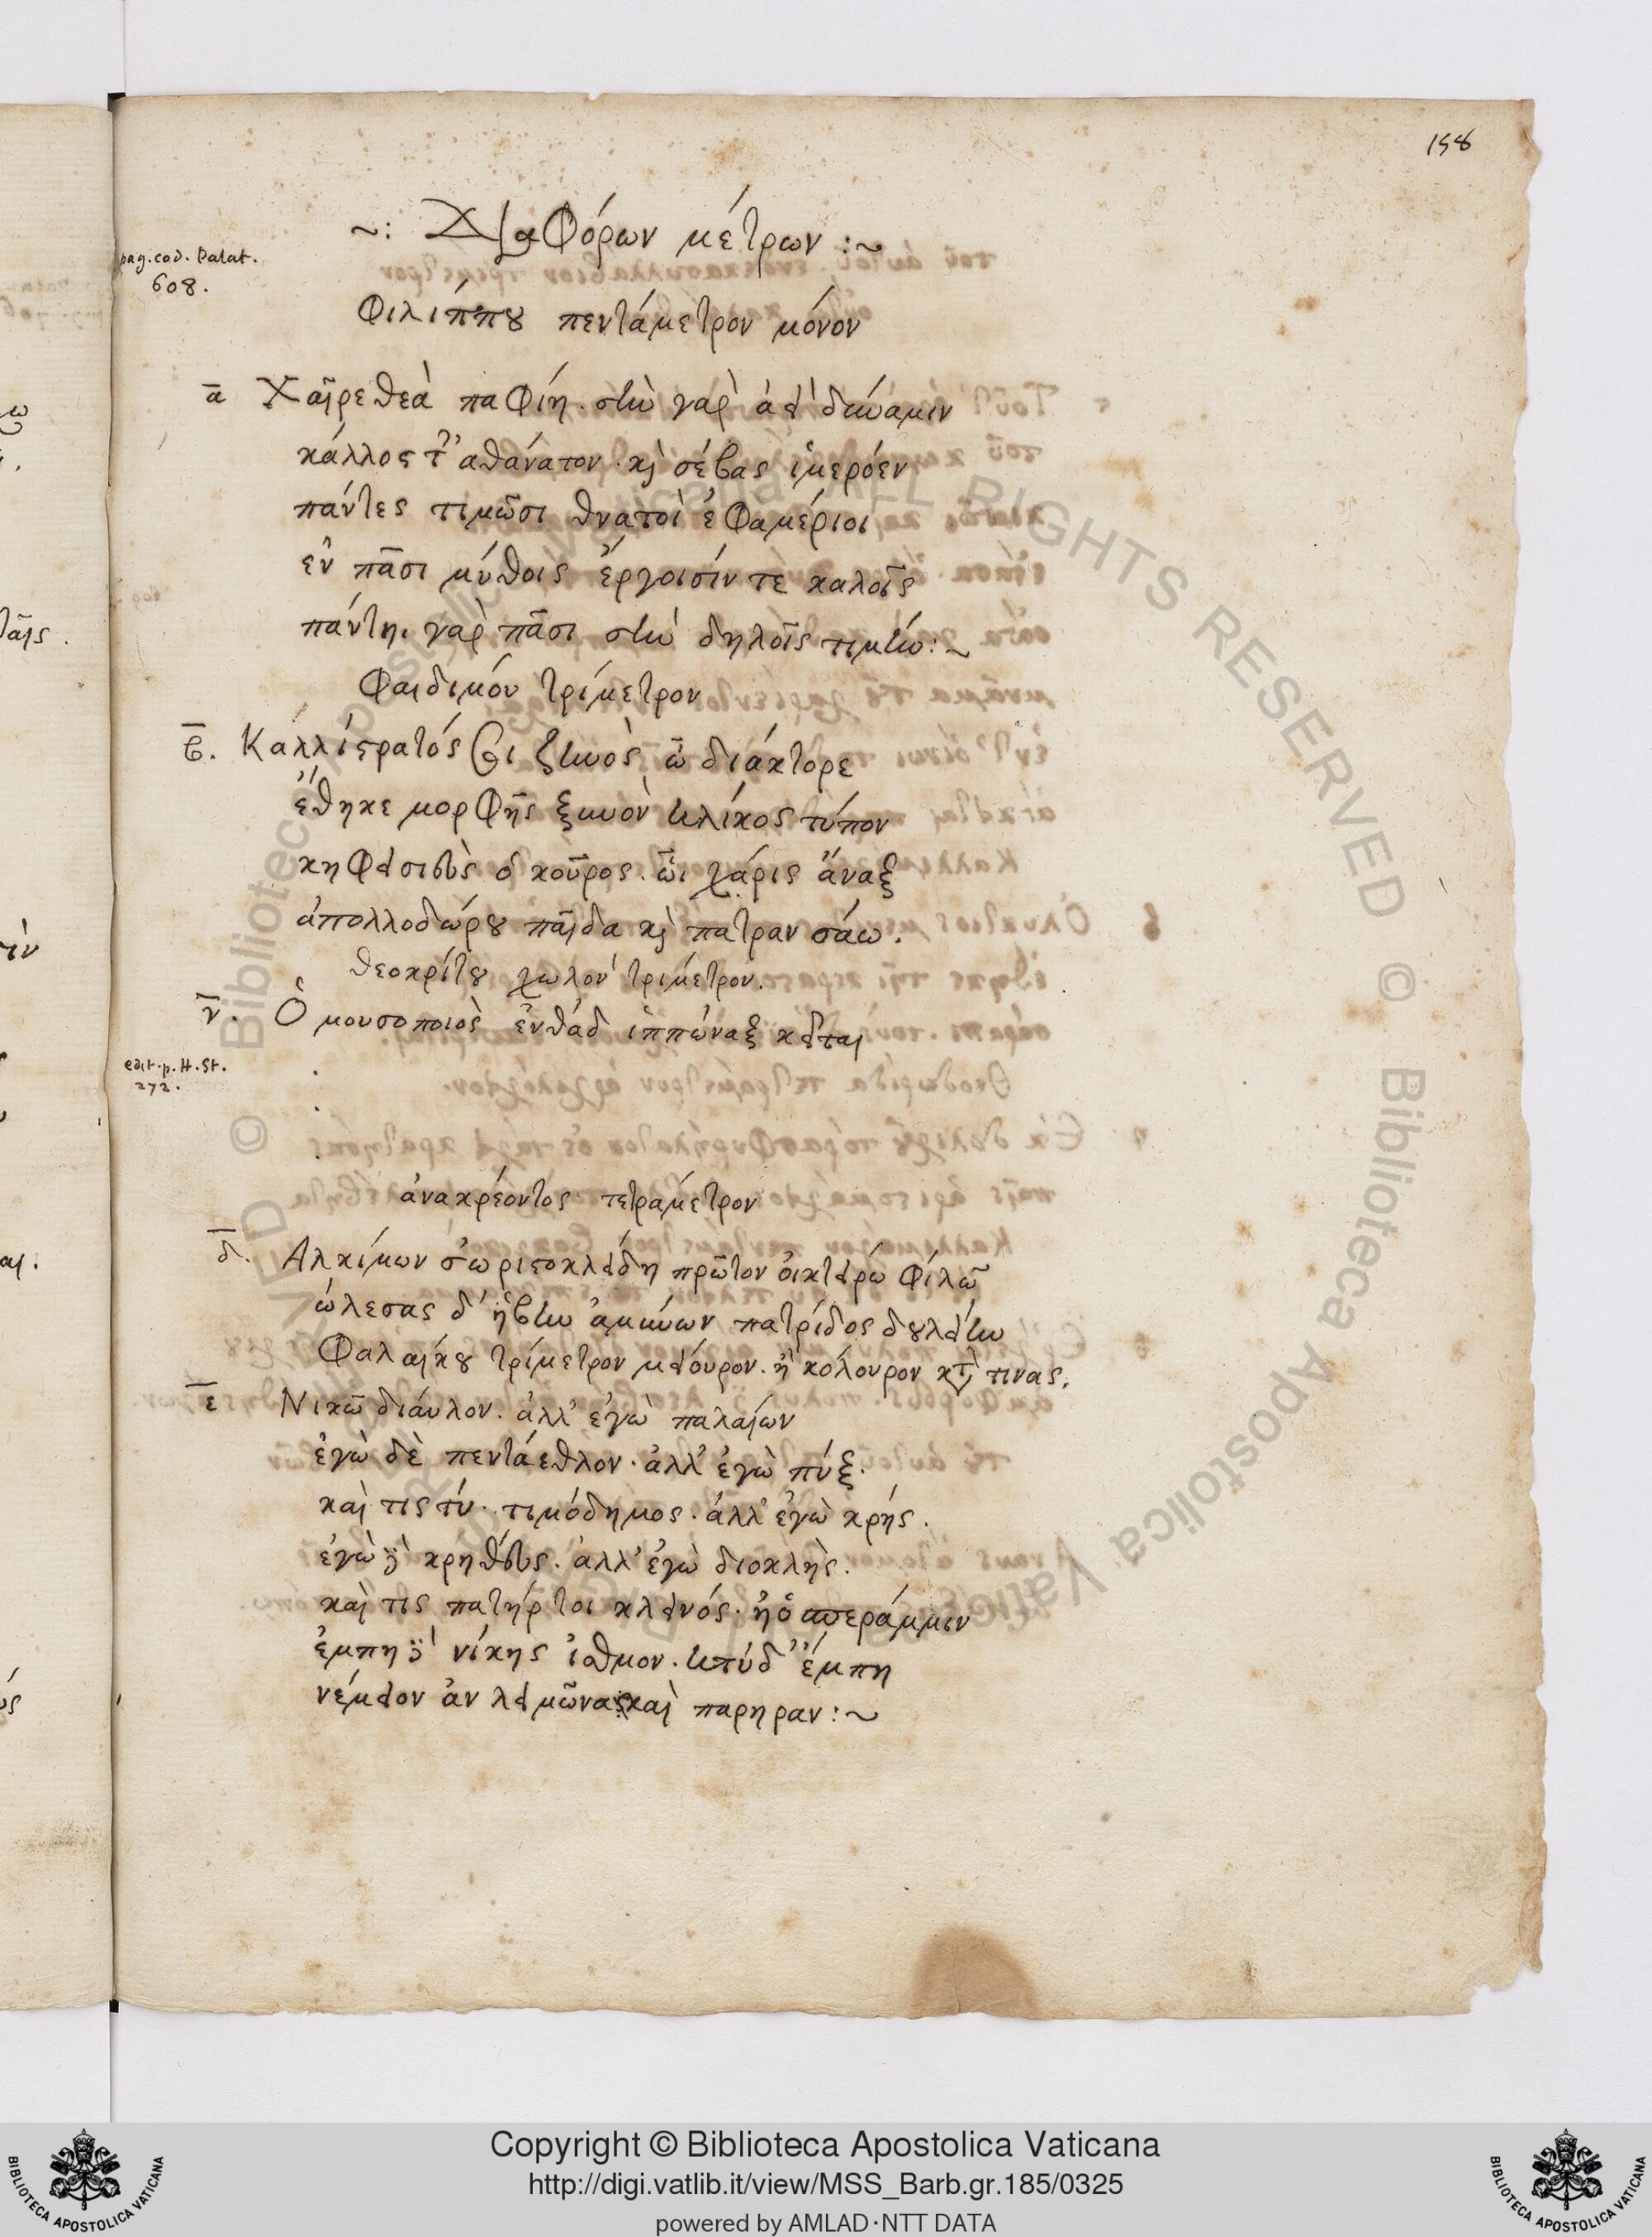 158
~: Διαφόρων μέτρων :~
pag. cod. Palat.
608.
Φιλίππου πεντάμετρον μόνον
α Χαῖρε θεὰ παφίη. σὴν γὰρ ἀεὶ δύναμιν
κάλλος τ' αθάνατον. καὶ σέβας ἱμερόεν
πάντες τιμῶσι θνατοὶ ἐφαμέριοι
εν πᾶσι μύθοις ἔργοισίν τε καλοῖς
πάντηι γαρ πᾶσι σὴν δηλοῖς τιμήν:~
Φαιδιμόυ τρίμετρον
β. Καλλίστρατός σοι ζηνὸς ὦ διάκτορε
ἔθηκε μορφῆς ξυνὸν ἡλίκος τύπον
κηφεισιεὺς ὁ κοῦρος. ὧι χάρις ἄναξ
ἀπολλοδώρου παῖδα καὶ πατραν σάω.
θεοκρίτου χωλὸν τρίμετρον.
γ. Ὁ μουσοποιὸς ἐνθάδ ἱππώναξ κεῖται
edit. p. H. St.
272.
ἀνακρέοντος τετράμετρον
δ. Αλκίμων σ' ωριστοκλείδη πρῶτον οἰκτείρω φίλῶ
ώλεσας δ' ἥβην ἀμύνων πατρίδος δουλείην
Φαλαίκου τρίμετρον μείουρον. ἢ κόλουρον κατὰ τινας.
ε Νικῶ διάυλον. ἀλλ' εγὼ παλαίων
ἐγὼ δὲ πεντάεθλον. ἀλλ' ἐγὼ πύξ.
καὶ τις τύ. τιμόδημος. ἀλλ' ἐγὼ κρής.
ἐγὼ δὲ κρηθεύς. ἀλλ' ἐγὼ διοκλῆς.
καὶ τις πατήρ τοι κλεινός. ἢ ὁ
ἐμπη δὲ νίκης ἰσθμον. ἡ τύδ' ἔμπη
νέμειον ἀν λειμῶνα καὶ παρ ηραν:~
Copyright © Biblioteca Apostolica Vaticana
http://digi.vatlib.it/view/MSS_Barb.gr.185/0325
powered by AMLAD·NTT DATA